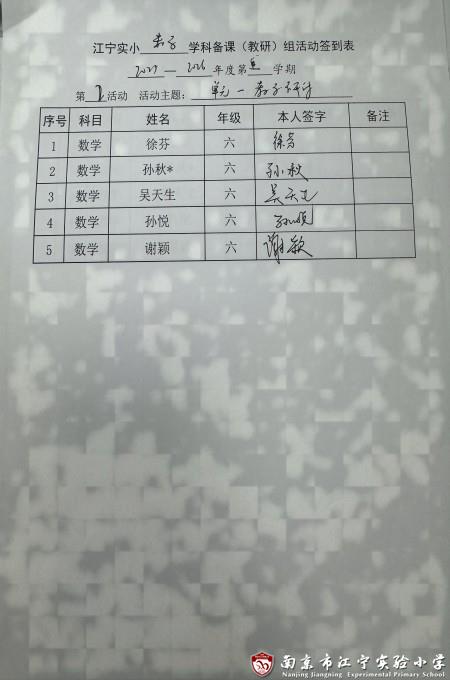 江宁实小 数学 学科备课（教研）组活动签到表
— 2026 年度第 学期
第 2 活动 活动主题： 单元一教学研讨
序号 科目 姓名 年级 本人签字 备注
1 数学 徐芬 六 徐芬
2 数学 孙秋* 六 孙秋
3 数学 吴天生 六 吴天生
4 数学 孙悦 六 孙悦
5 数学 谢颖 六 谢颖
南京市江宁实验小学
Nanjing Jiangning Experimental Primary School